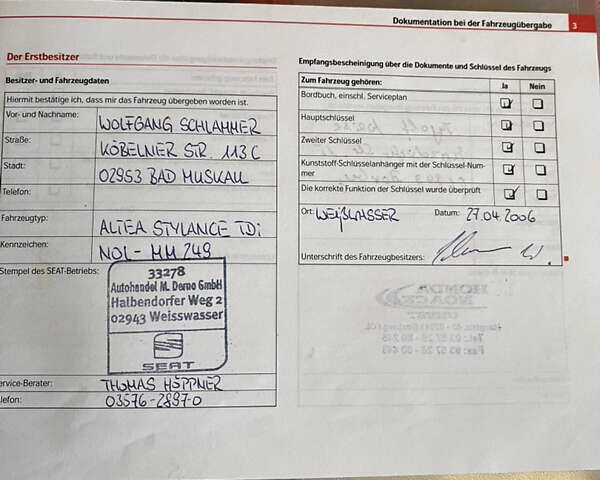 Dokumentation bei der Fahrzeugübergabe 3
Der Erstbesitzer
Besitzer- und Fahrzeugdaten
Hiermit bestätige ich, dass mir das Fahrzeug übergeben worden ist.
Vor- und Nachname: WOLFGANG SCHLAMMER
Straße: KÖBELNER STR. 113 C
Stadt: 02953 BAD MUSKAU
Telefon:
Fahrzeugtyp: ALTEA STYLANCE TDi
Kennzeichen: NOL - MM 249
Stempel des SEAT-Betriebs:
33278
Autohandel M. Demo GmbH
Halbendorfer Weg 2
02943 Weisswasser
SEAT
ervice-Berater: THOMAS HÖPPNER
elefon: 03576-2897-0
Empfangsbescheinigung über die Dokumente und Schlüssel des Fahrzeugs
Zum Fahrzeug gehören: Ja Nein
Bordbuch, einschl. Serviceplan
Hauptschlüssel
Zweiter Schlüssel
Kunststoff-Schlüsselanhänger mit der Schlüssel-Num-
mer
Die korrekte Funktion der Schlüssel wurde überprüft
Ort: WEIßWASSER Datum: 27.04.2006
Unterschrift des Fahrzeugbesitzers: